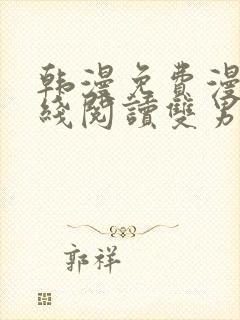 韩漫免费漫
线阅读双男
郭祥